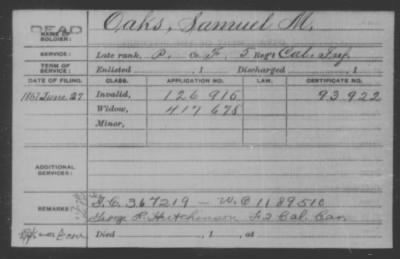 DEAD
NAME OF SOLDIER: Oaks, Samuel M.
SERVICE: Late rank, P. Co. F, 5 Reg't Cal. Inf.
TERM OF SERVICE: Enlisted , 1 Discharged , 1
DATE OF FILING. CLASS. APPLICATION NO. LAW. CERTIFICATE NO.
1867 June 27 Invalid, 126 916 93.922
Widow, 417 678
Minor,
ADDITIONAL SERVICES:
REMARKS: I.C. 367219 — W.C. 1189510
George R. Hutchinson F 2 Cal. Cav.
Died , 1 , at